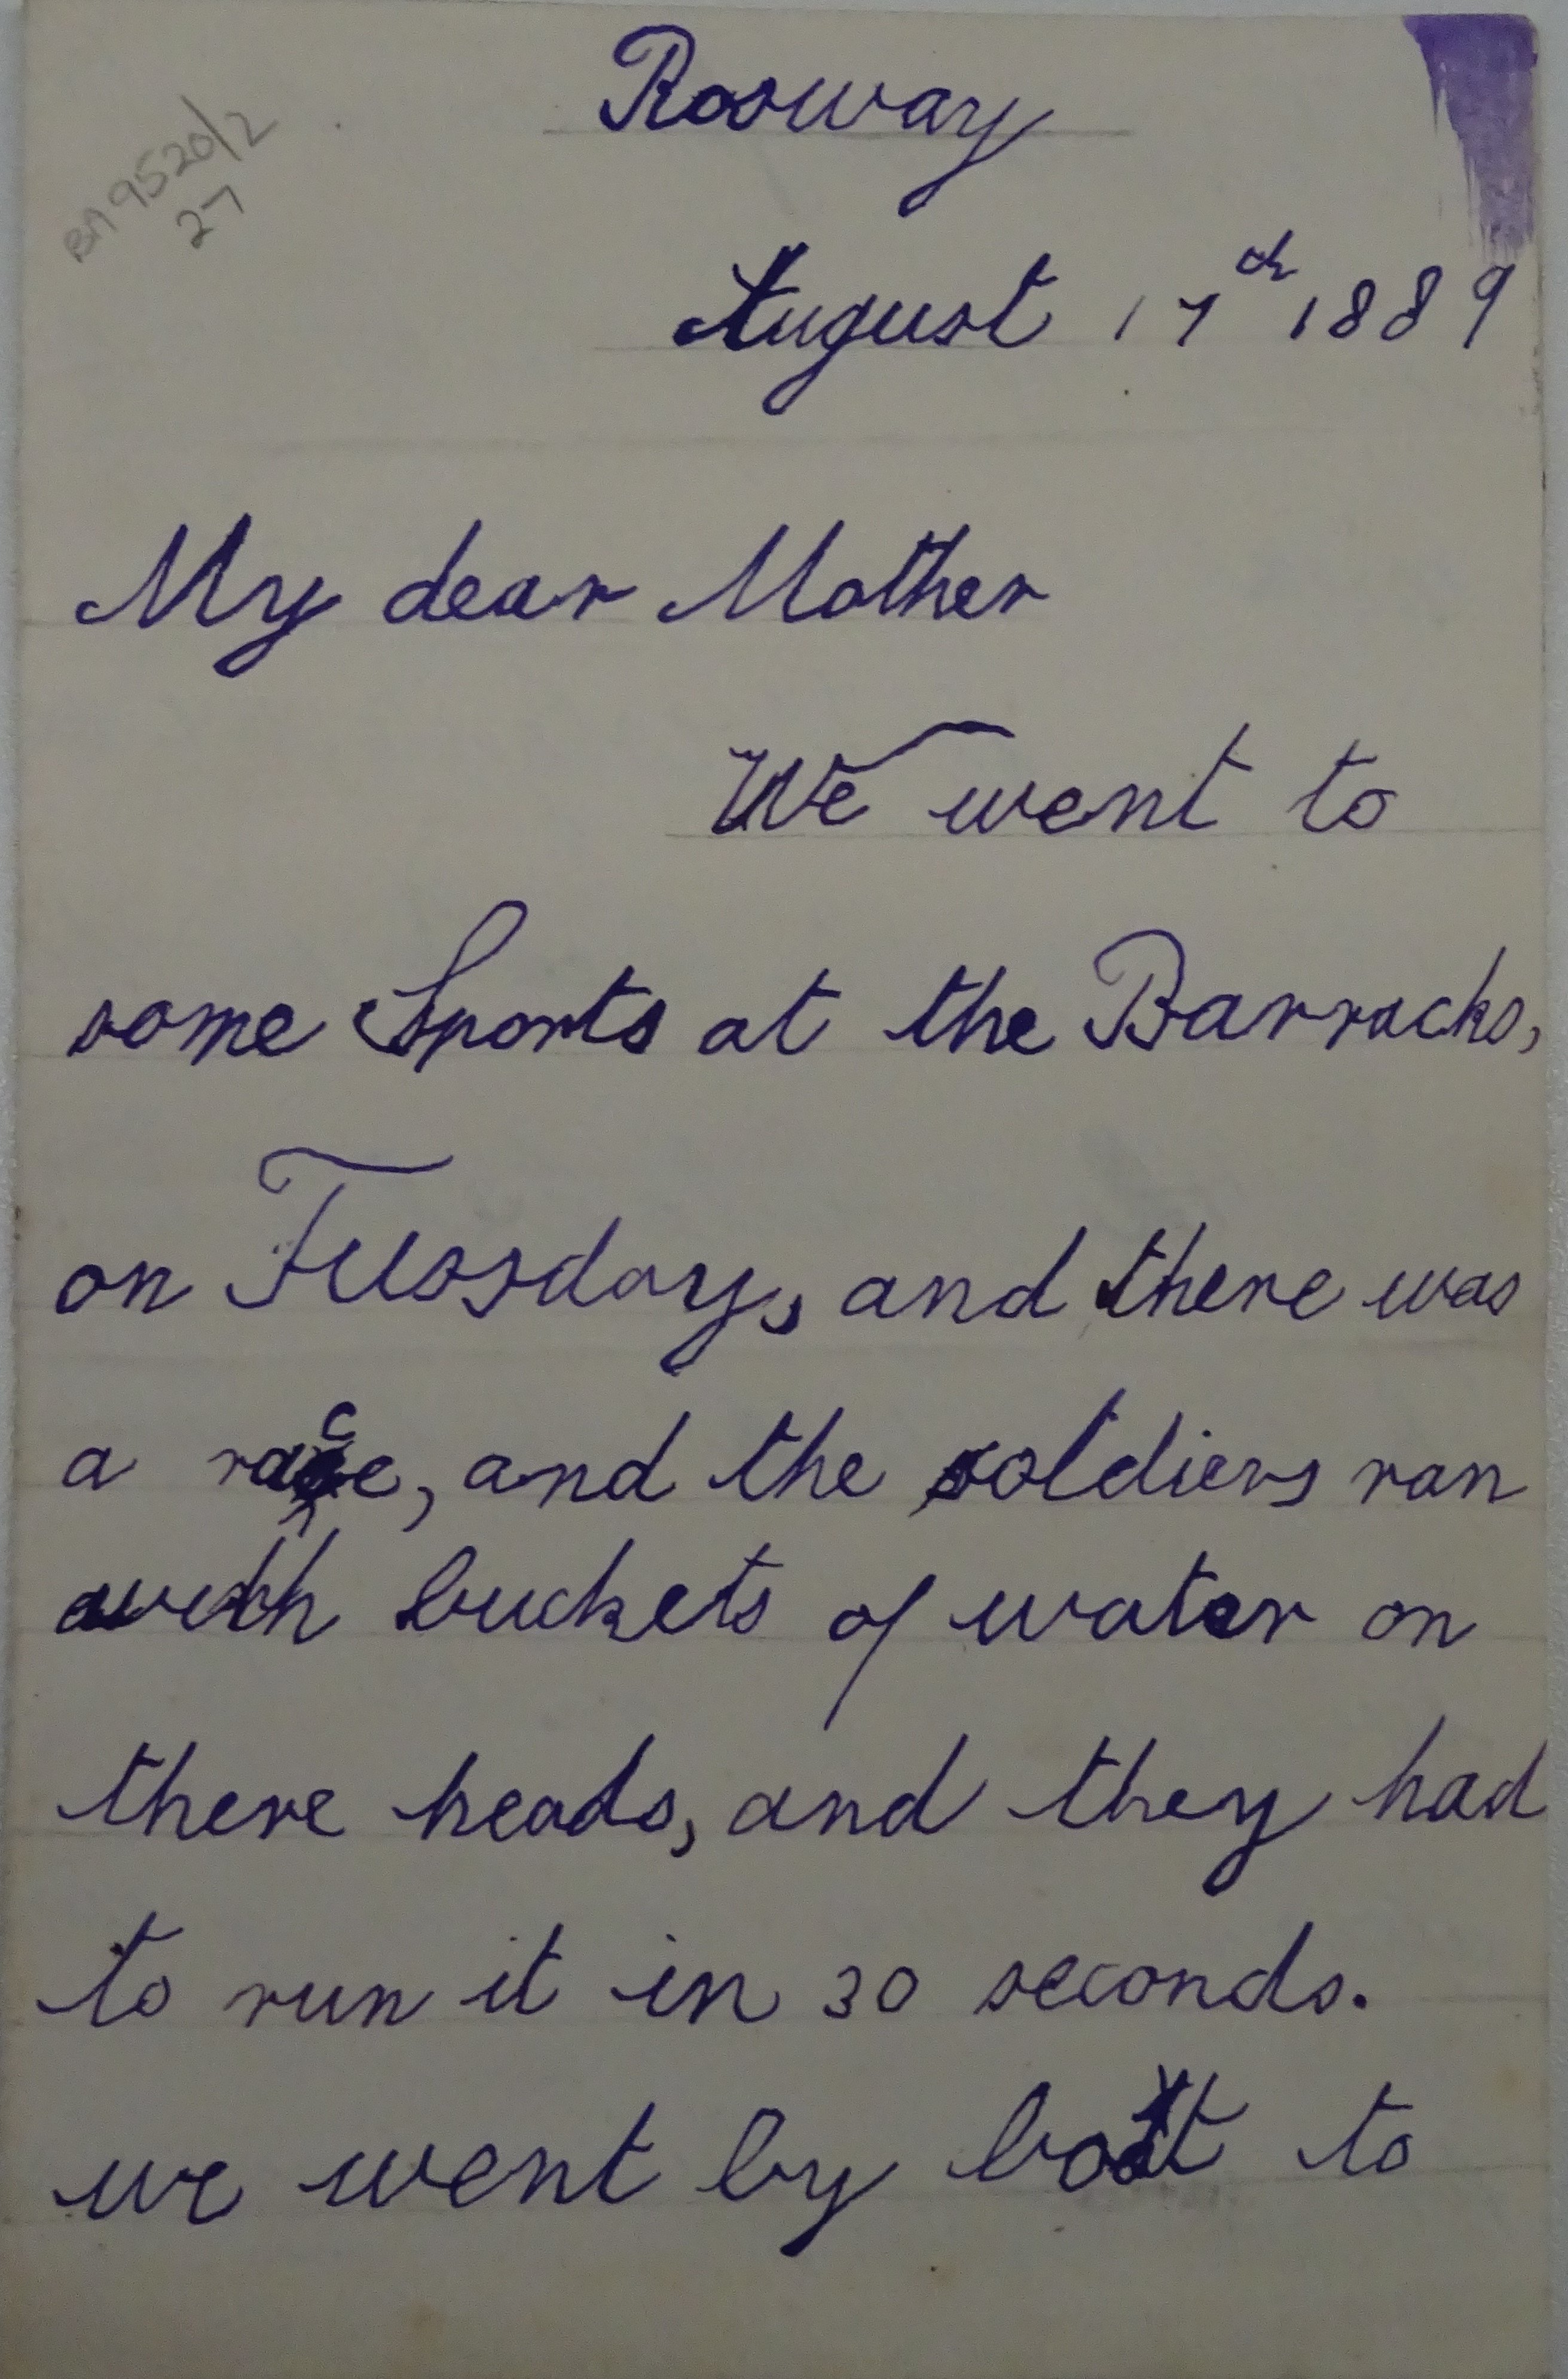 BA9520/2
27
Rosway
August 17th 1889
My dear Mother
We went to
some Sports at the Barracks,
on Tussday, and there was
a race, and the soldiers ran
with buckets of water on
there heads, and they had
to run it in 30 seconds.
we went by boat to